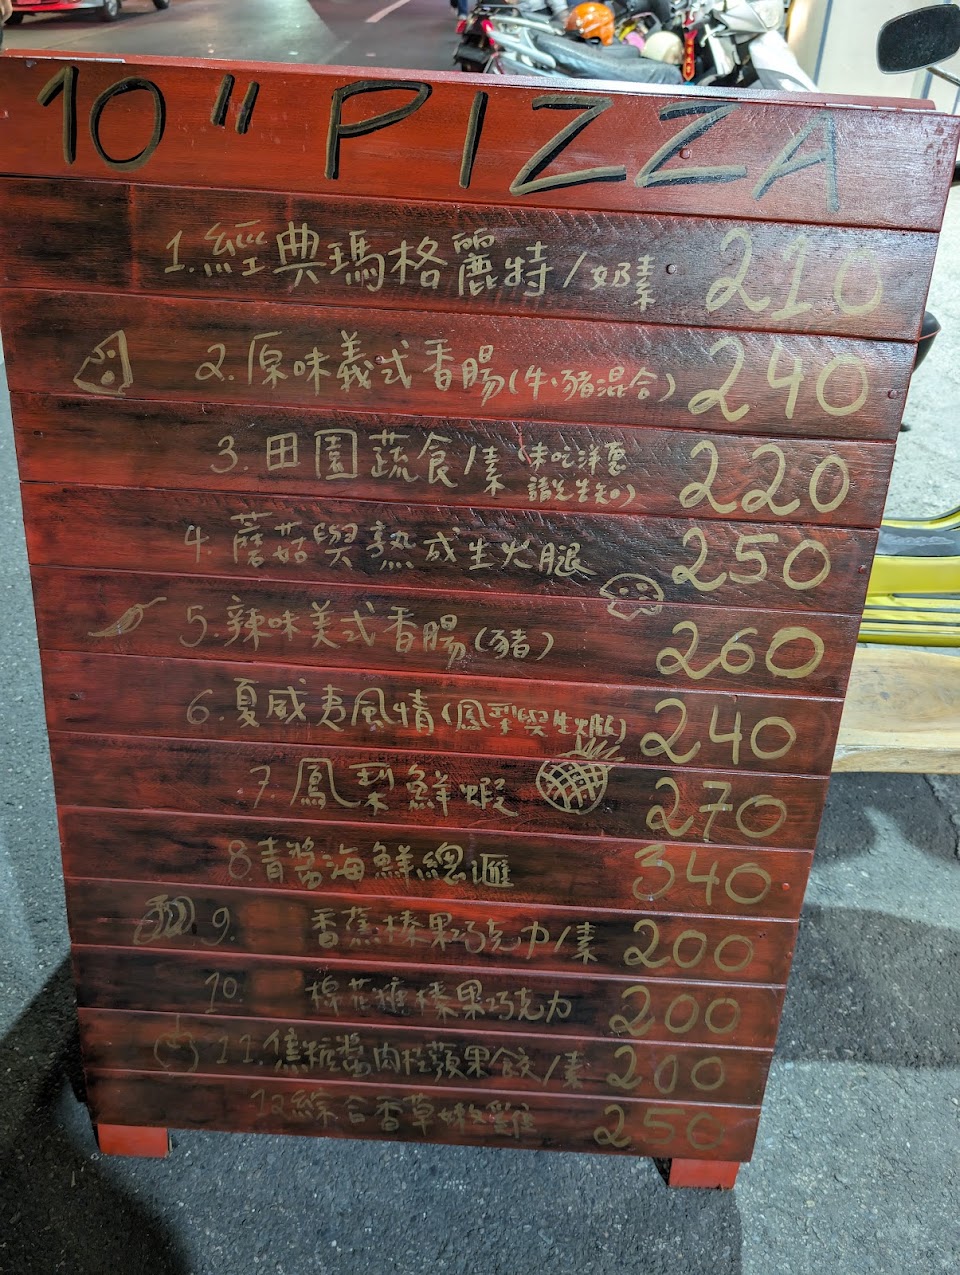 10" PIZZA
1.經典瑪格麗特/奶素 210
2.原味義式香腸(牛、豬混合) 240
3.田園蔬食/素 (未吃洋蔥 220
請先告知)
4.蘑菇與熟成生火腿 250
5.辣味美式香腸(豬) 260
6.夏威夷風情(鳳梨與生火腿) 240
7.鳳梨鮮蝦 270
8.青醬海鮮總匯 340
9. 香蕉榛果巧克力/素 200
10. 棉花糖榛果巧克力 200
11.焦糖醬肉桂蘋果餃/素 200
12綜合香草嫩雞 250